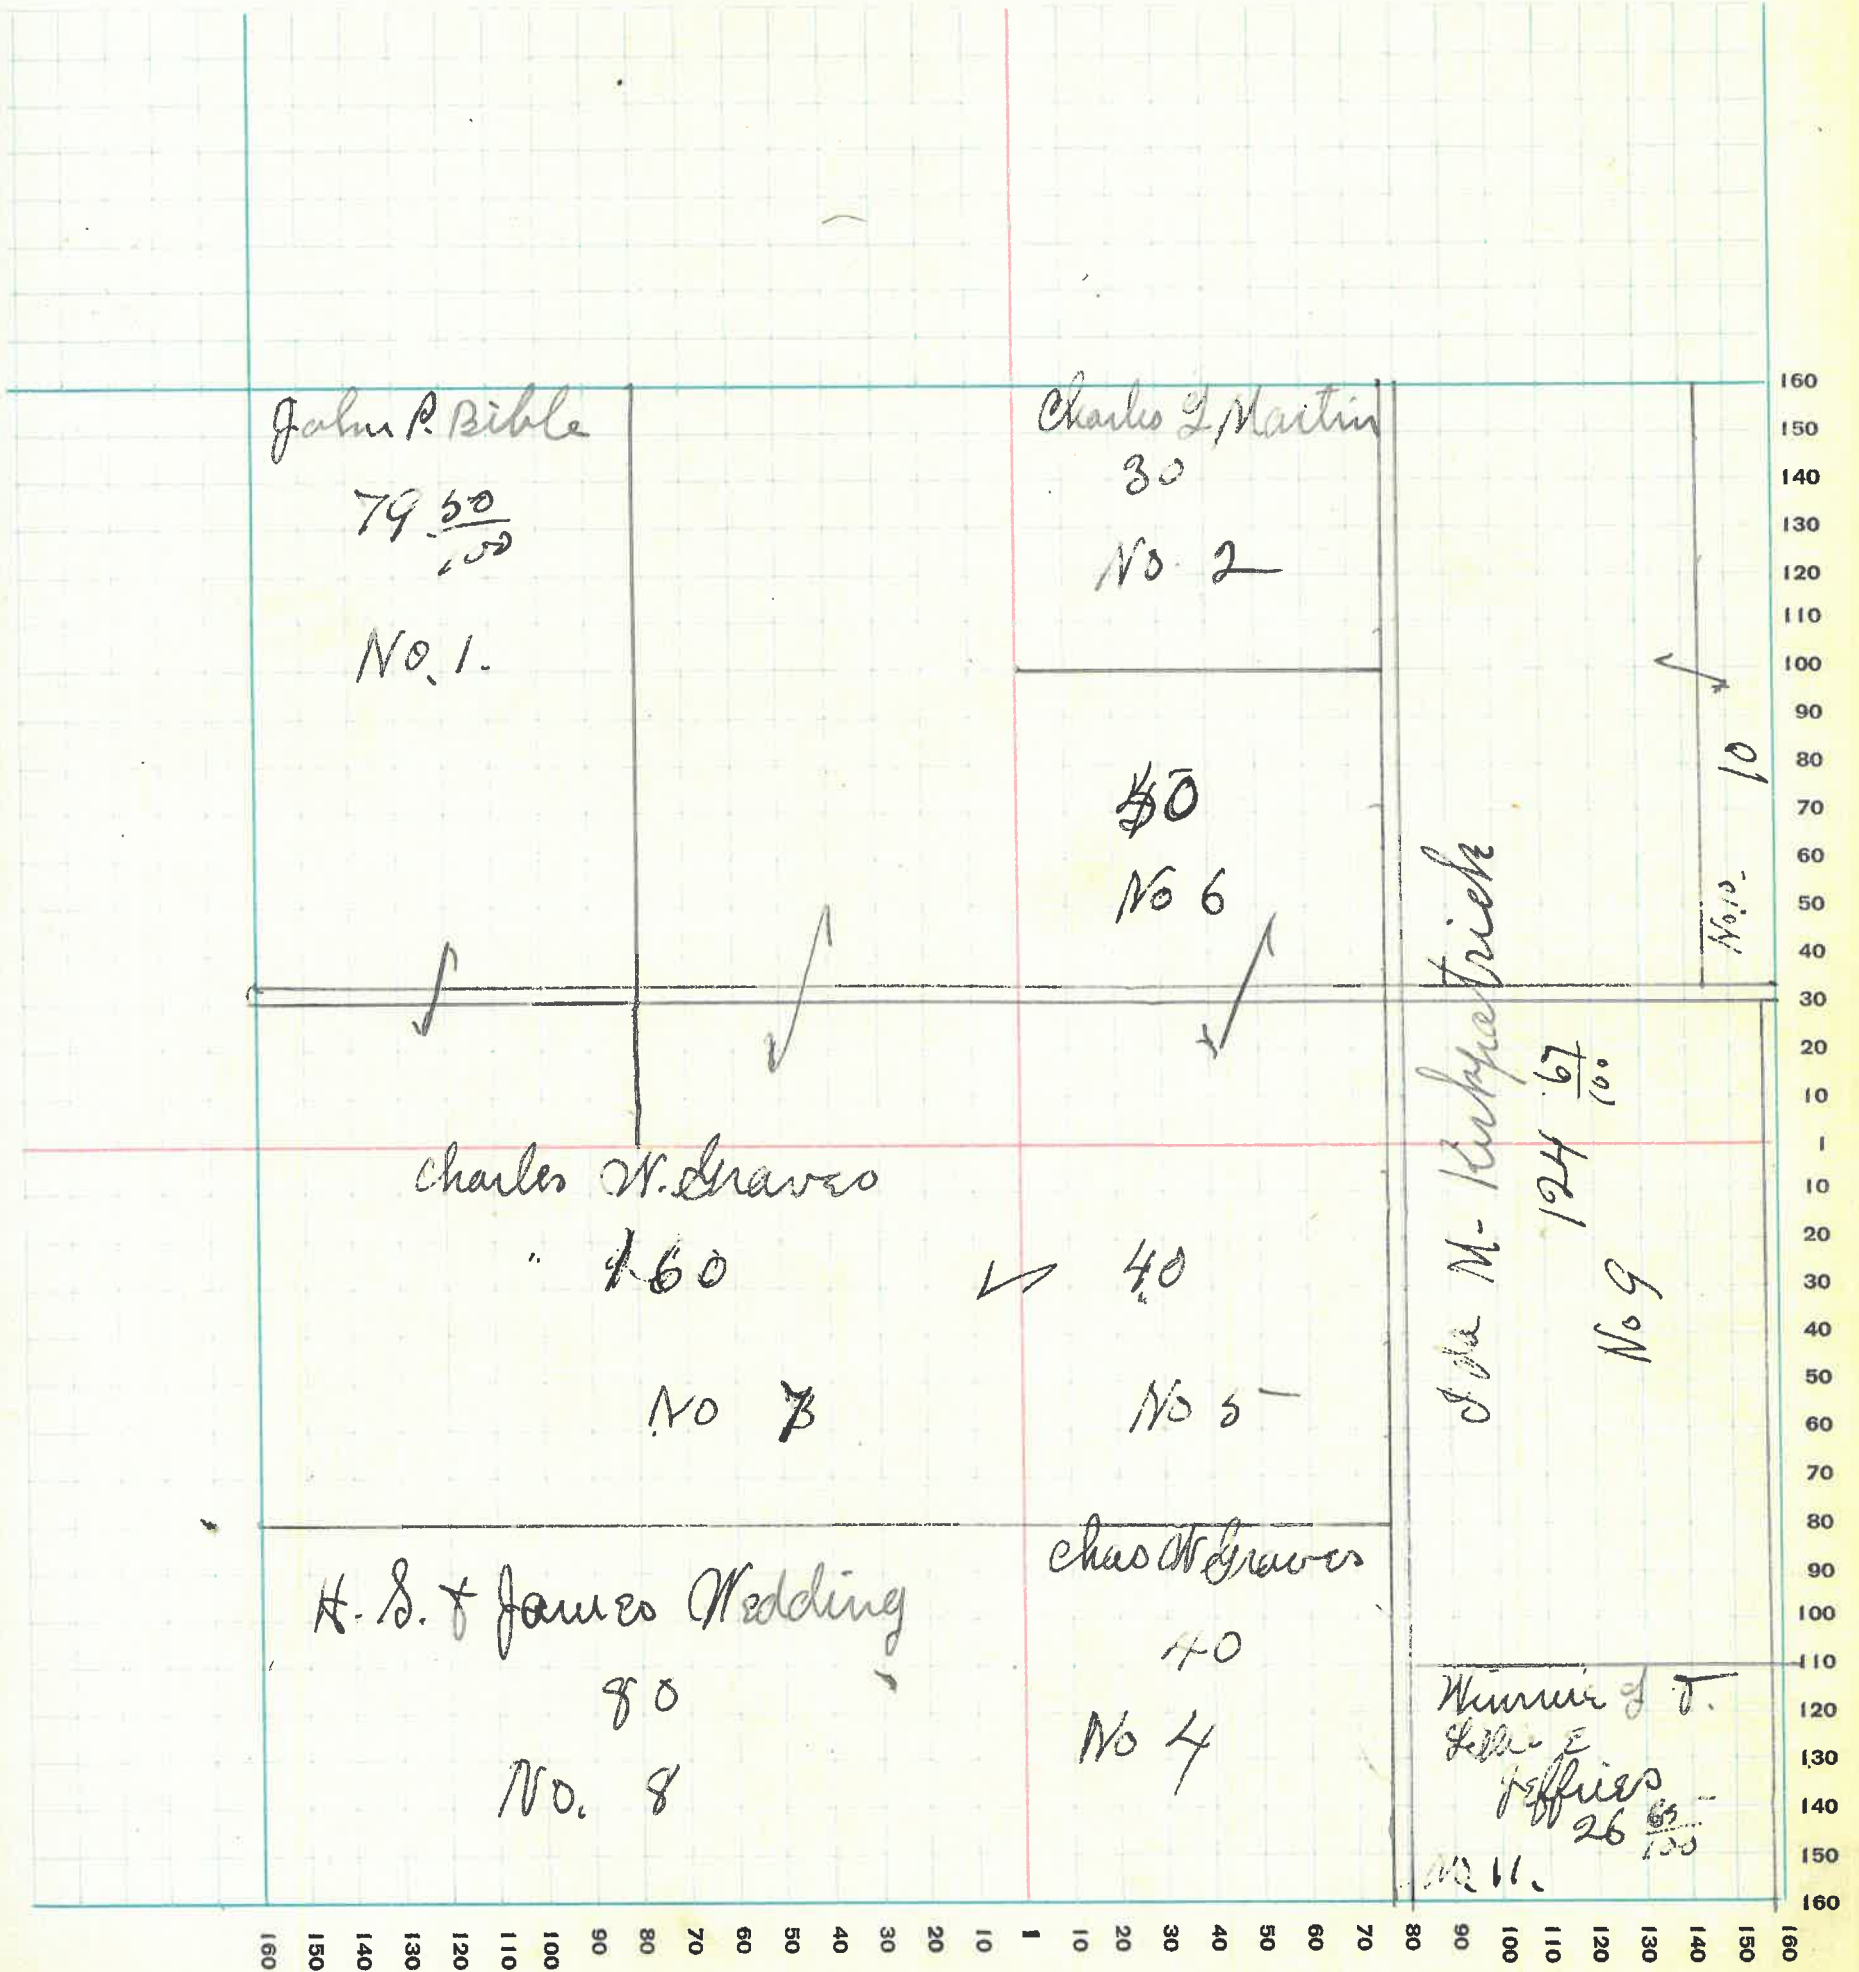 John P. Bible
79 50/100
No. 1.
Charles L Martin
30
No. 2
50
No 6
10
No. 10
Ida M. Kirkpatrick
124 67/100
No 9
Charles W. Graves
" 160
No 7
40
No 5
H. S. & James Wedding
80
No. 8
Chas W Graves
40
No 4
Jeffries
26 65/100
No. 11.
160
150
140
130
120
110
100
90
80
70
60
50
40
30
20
10
1
10
20
30
40
50
60
70
80
90
100
110
120
130
140
150
160
160 150 140 130 120 110 100 90 80 70 60 50 40 30 20 10 1 10 20 30 40 50 60 70 80 90 100 110 120 130 140 150 160